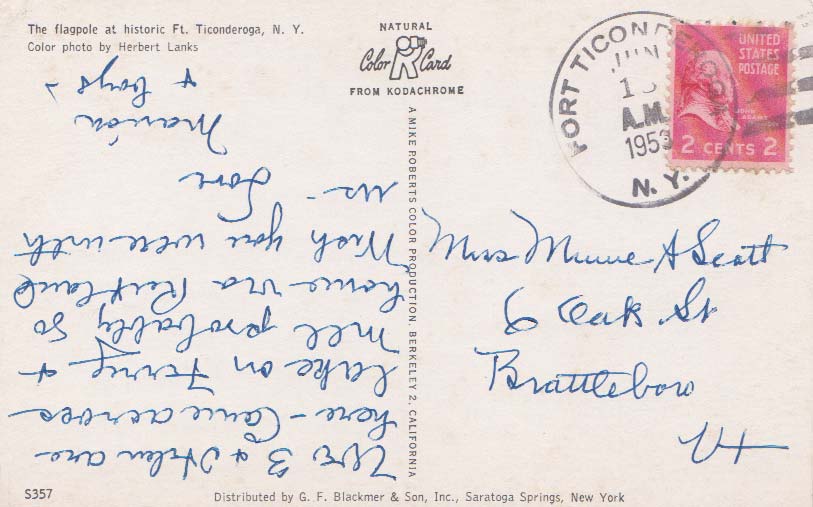 The flagpole at historic Ft. Ticonderoga, N. Y.
Color photo by Herbert Lanks
NATURAL
Color Card
FROM KODACHROME
FORT TICONDEROGA
JUN
A.M.
1953
N. Y.
UNITED
STATES
POSTAGE
JOHN
ADAMS
2 CENTS 2
A MIKE ROBERTS COLOR PRODUCTION, BERKELEY 2, CALIFORNIA
We 3 & Helen are
here - Came across
Lake on Ferry &
will probably go
home via Rutland
Wish you were with
us -
Love
Marion
& boys
Miss Minnie A Scott
6 Oak St
Brattleboro
Vt
S357
Distributed by G. F. Blackmer & Son, Inc., Saratoga Springs, New York